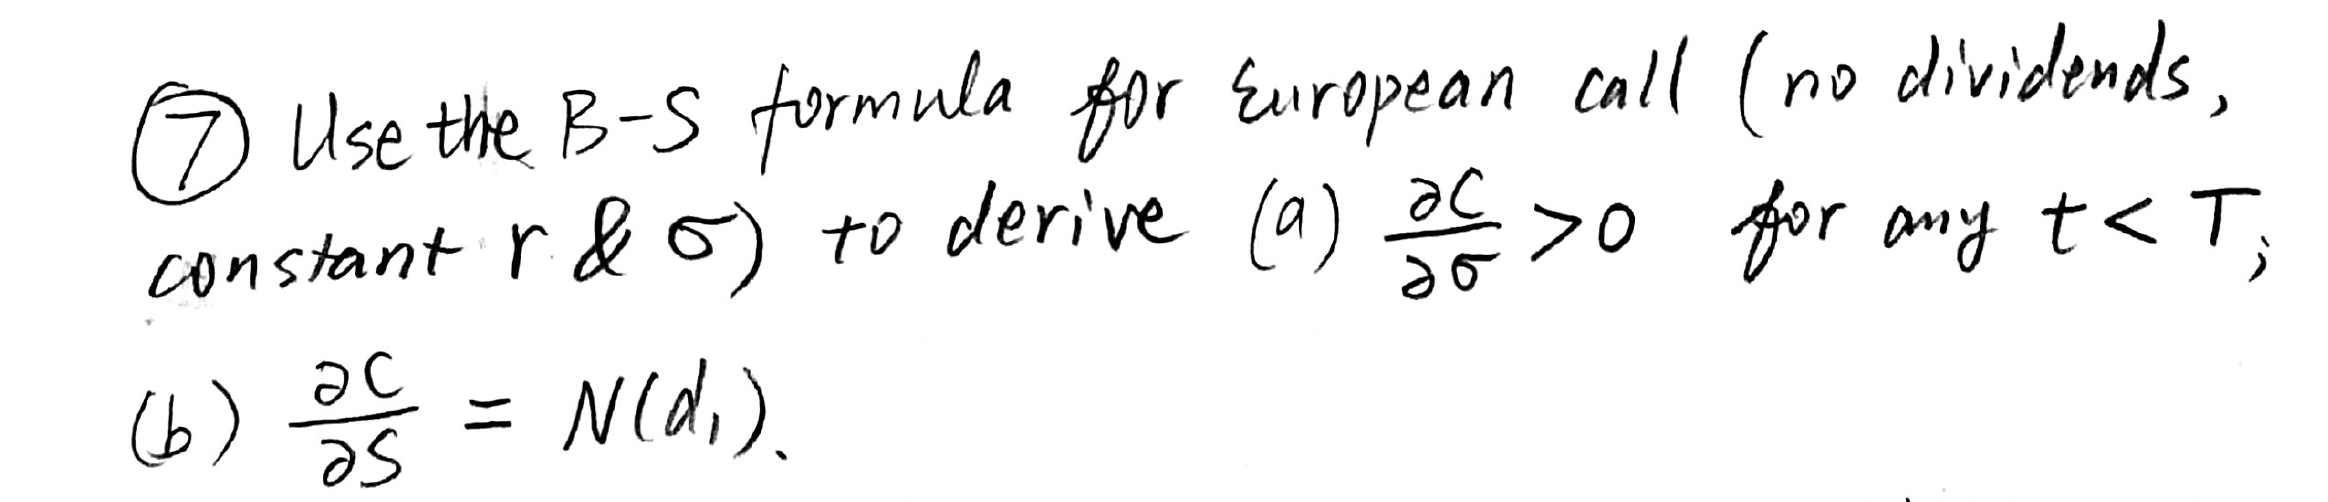 ⑦ Use the B-S formula for European call (no dividends,
constant r & σ) to derive (a) ∂C/∂σ > 0 for any t < T;
(b) ∂C/∂S = N(d₁).